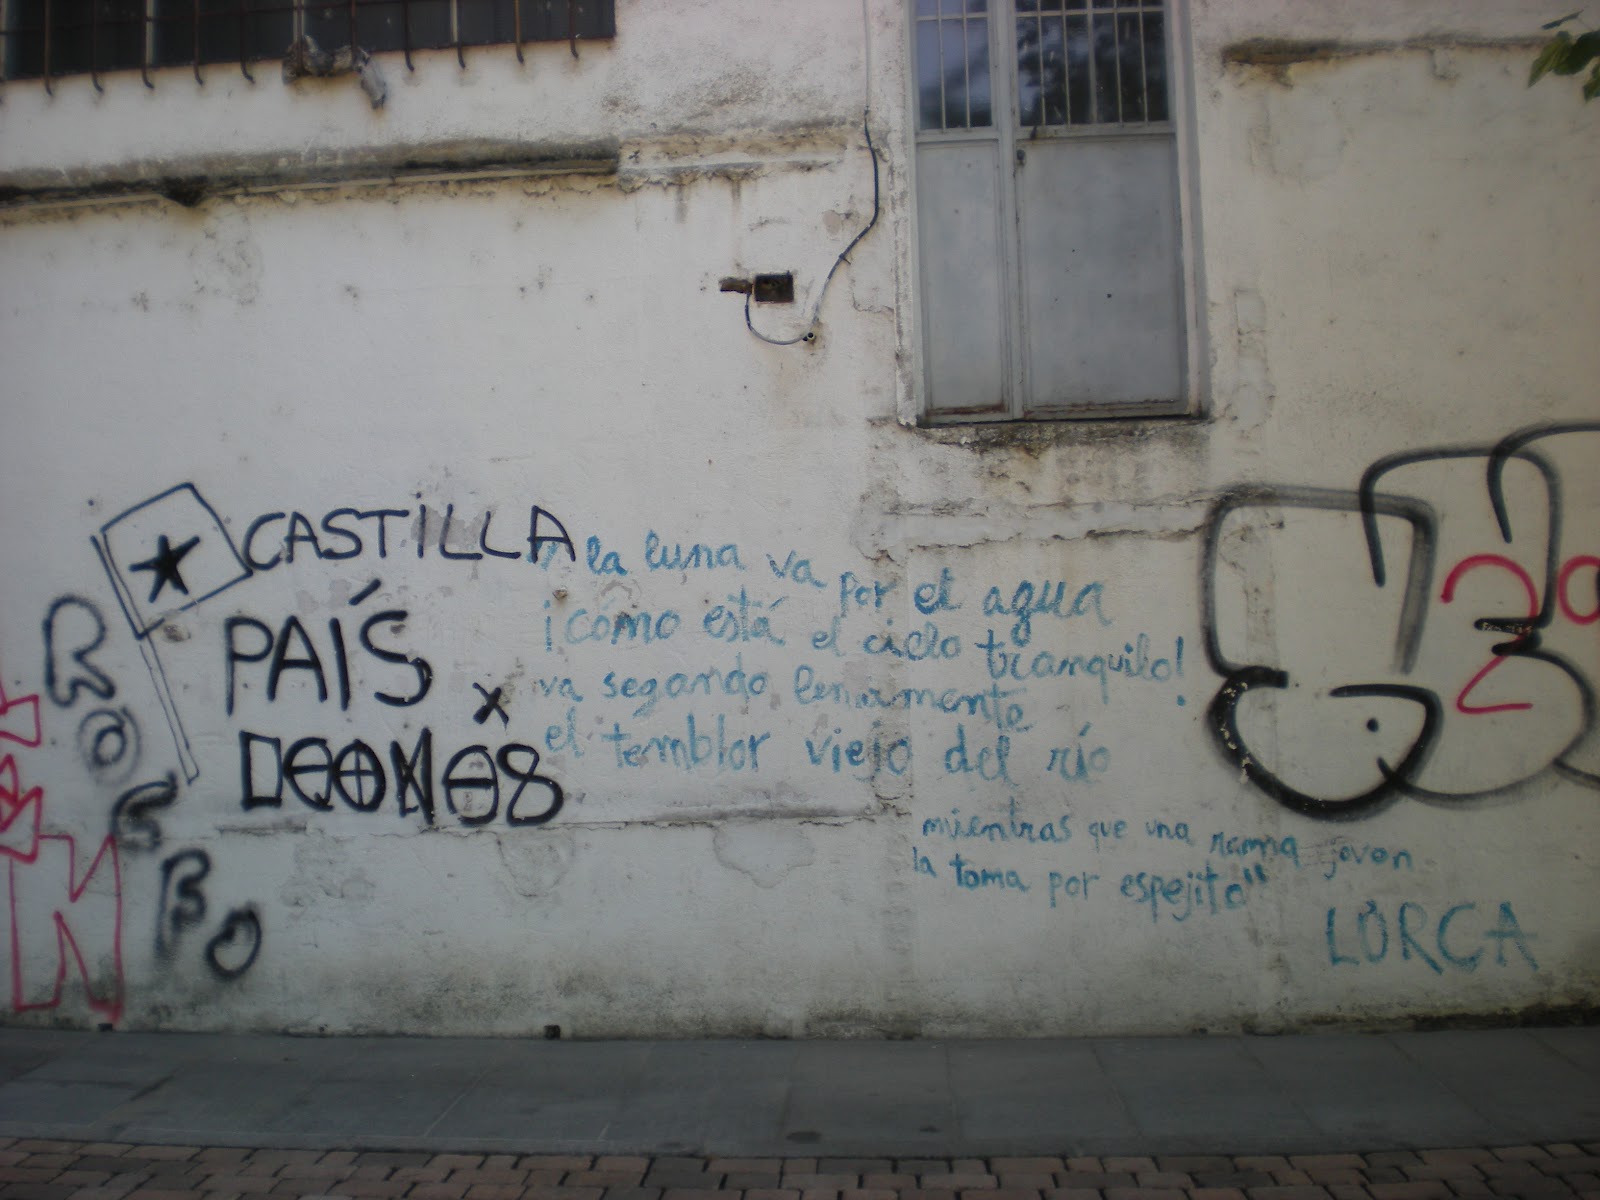 CASTILLA
PAÍS
ROCFO
la luna va por el agua
¡cómo está el cielo tranquilo!
va segando lentamente
el temblor viejo del río
mientras que una rama joven
la toma por espejito"
LORCA